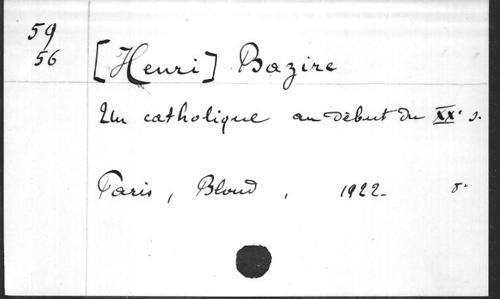 59
56
[Henri] Bazire
Un catholique au début du XXe s.
Paris, Bloud, 1922. 8°